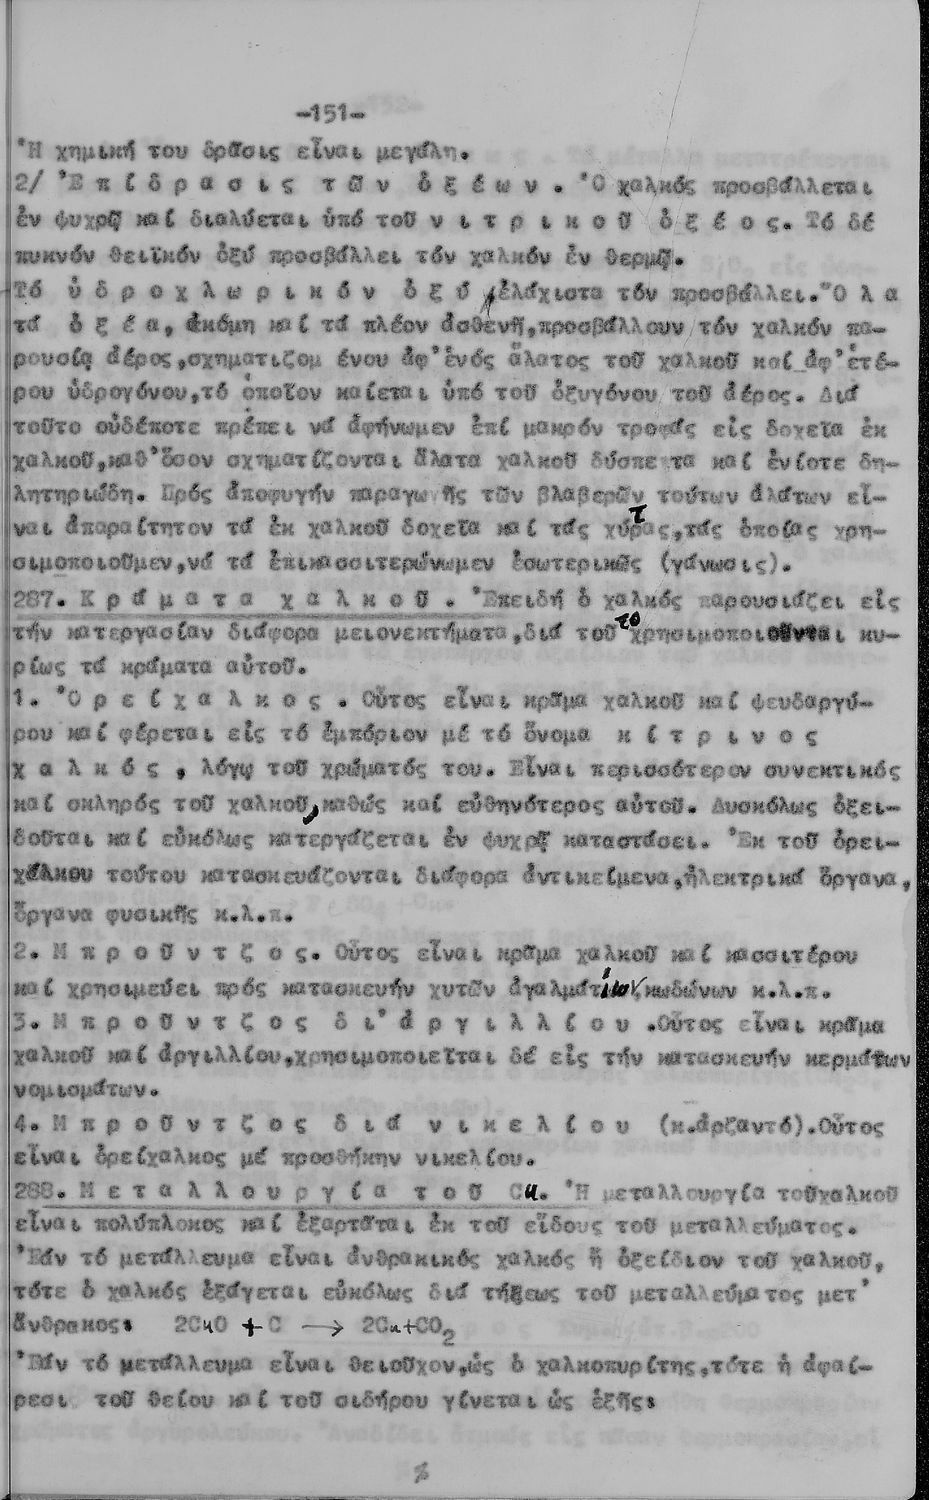 -151-
Ἡ χημική του δρᾶσις εἶναι μεγάλη.
2/ Ἐ π ί δ ρ α σ ι ς τ ῶ ν ὀ ξ έ ω ν . Ὁ χαλκός προσβάλλεται
ἐν ψυχρῷ καί διαλύεται ὑπό τοῦ ν ι τ ρ ι κ ο ῦ ὀ ξ έ ο ς. Τό δέ
πυκνόν θειϊκόν ὀξύ προσβάλλει τόν χαλκόν ἐν θερμῷ.
Τό ὑ δ ρ ο χ λ ω ρ ι κ ό ν ὀ ξ ύ ἐλάχιστα τόν προσβάλλει. Ὅ λ α
τά ὀ ξ έ α, ἀκόμη καί τά πλέον ἀσθενῆ,προσβάλλουν τόν χαλκόν πα-
ρουσίᾳ ἀέρος,σχηματιζομ ένου ἀφ'ἑνός ἅλατος τοῦ χαλκοῦ καί ἀφ'ἑτέ-
ρου ὑδρογόνου,τό ὁποῖον καίεται ὑπό τοῦ ὀξυγόνου τοῦ ἀέρος. Διά
τοῦτο οὐδέποτε πρέπει νά ἀφήνωμεν ἐπί μακρόν τροφάς εἰς δοχεῖα ἐκ
χαλκοῦ,καθ'ὅσον σχηματίζονται ἅλατα χαλκοῦ δύσπεπτα καί ἐνίοτε δη-
λητηριώδη. Πρός ἀποφυγήν παραγωγῆς τῶν βλαβερῶν τούτων ἁλάτων εἶ-
ναι ἀπαραίτητον τά ἐκ χαλκοῦ δοχεῖα καί τάς χύτρας,τάς ὁποίας χρη-
σιμοποιοῦμεν,νά τά ἐπικασσιτερώνωμεν ἐσωτερικῶς (γάνωσις).
287. Κ ρ ά μ α τ α χ α λ κ ο ῦ . Ἐπειδή ὁ χαλκός παρουσιάζει εἰς
τήν κατεργασίαν διάφορα μειονεκτήματα,διά τοῦτο χρησιμοποιοῦνται κυ-
ρίως τά κράματα αὐτοῦ.
1. Ὀ ρ ε ί χ α λ κ ο ς . Οὗτος εἶναι κρᾶμα χαλκοῦ καί ψευδαργύ-
ρου καί φέρεται εἰς τό ἐμπόριον μέ τό ὄνομα κ ί τ ρ ι ν ο ς
χ α λ κ ό ς , λόγῳ τοῦ χρώματός του. Εἶναι περισσότερον συνεκτικός
καί σκληρός τοῦ χαλκοῦ,καθώς καί εὐθηνότερος αὐτοῦ. Δυσκόλως ὀξει-
δοῦται καί εὐκόλως κατεργάζεται ἐν ψυχρᾷ καταστάσει. Ἐκ τοῦ ὀρει-
χάλκου τούτου κατασκευάζονται διάφορα ἀντικείμενα,ἠλεκτρικά ὄργανα,
ὄργανα φυσικῆς κ.λ.π.
2. Μ π ρ ο ῦ ν τ ζ ο ς. Οὗτος εἶναι κρᾶμα χαλκοῦ καί κασσιτέρου
καί χρησιμεύει πρός κατασκευήν χυτῶν ἀγαλμάτων,κωδώνων κ.λ.π.
3. Μ π ρ ο ῦ ν τ ζ ο ς δ ι' ἀ ρ γ ι λ λ ί ο υ .Οὗτος εἶναι κρᾶμα
χαλκοῦ καί ἀργιλλίου,χρησιμοποιεῖται δέ εἰς τήν κατασκευήν κερμάτων
νομισμάτων.
4. Μ π ρ ο ῦ ν τ ζ ο ς δ ι ά ν ι κ ε λ ί ο υ (κ.ἀρζαντό).Οὗτος
εἶναι ὀρείχαλκος μέ προσθήκην νικελίου.
288. Μ ε τ α λ λ ο υ ρ γ ί α τ ο ῦ Cu. Ἡ μεταλλουργία τοῦχαλκοῦ
εἶναι πολύπλοκος καί ἐξαρτᾶται ἐκ τοῦ εἴδους τοῦ μεταλλεύματος.
Ἐάν τό μετάλλευμα εἶναι ἀνθρακικός χαλκός ἤ ὀξείδιον τοῦ χαλκοῦ,
τότε ὁ χαλκός ἐξάγεται εὐκόλως διά τήξεως τοῦ μεταλλεύματος μετ'
ἄνθρακος: 2CuO + C → 2Cu+CO2
Ἐάν τό μετάλλευμα εἶναι θειοῦχον,ὡς ὁ χαλκοπυρίτης,τότε ἡ ἀφαί-
ρεσι τοῦ θείου καί τοῦ σιδήρου γίνεται ὡς ἑξῆς: